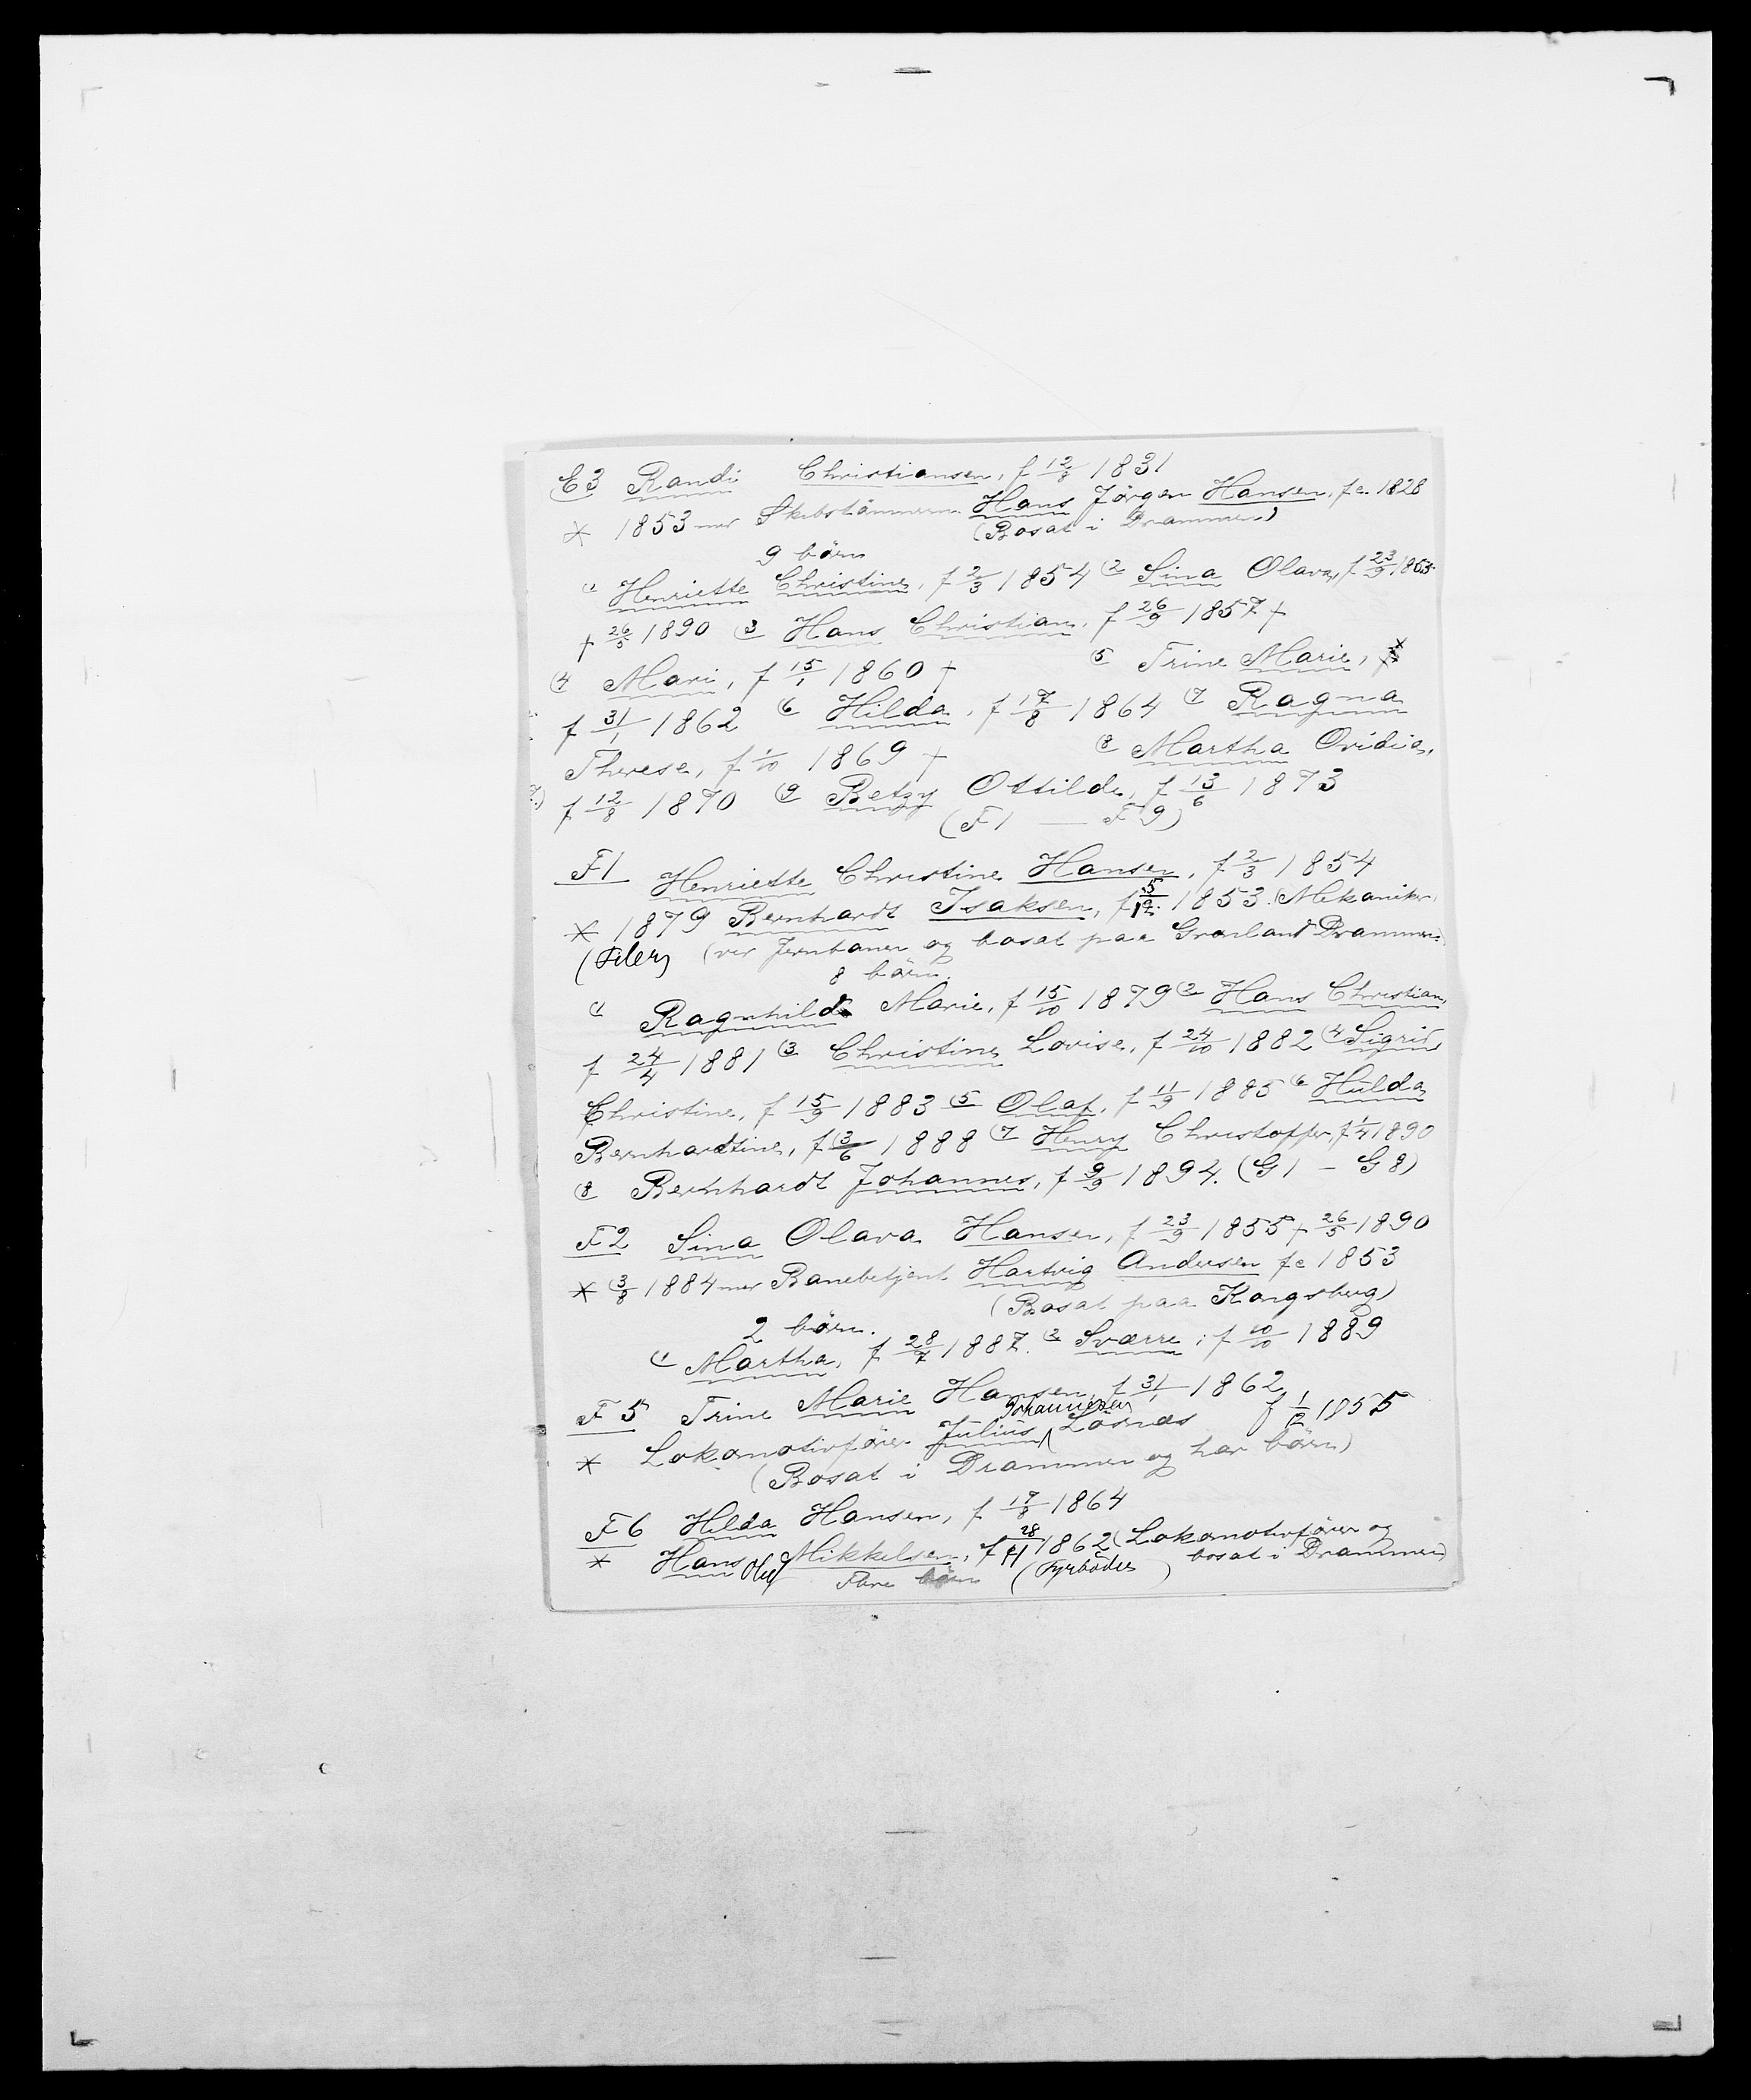 E3 Randi Christiansen, f 12/8 1831
* 1853 m Skibstømmerm. Hans Jörgen Hansen, f c. 1828
(Bosat i Drammen)
9 börn
(1 Henriette Christine, f 2/3 1854 (2 Sina Olava, f 23/9 1855
† 26/5 1890 (3 Hans Christian, f 26/9 1857 †
(4 Mari, f 15/1 1860 † (5 Trine Marie,
f 31/1 1862 (6 Hilda, f 17/8 1864 (7 Ragna
Therese, f 1/10 1869 † (8 Martha Ovidia,
f 12/8 1870 (9 Betzy Ottilde, f 13/6 1873
(F1 — F9)
F1 Henriette Christine Hansen, f 2/3 1854
* 1879 Bernhardt Isaksen, f 5/12 1853. (Mekaniker,
(Filer) (ved Jernbanen og bosat paa Grønland Drammen)
8 börn.
(1 Ragnhild Marie, f 15/10 1879 (2 Hans Christian,
f 24/4 1881 (3 Christine Lovise, f 24/10 1882 (4 Sigrid
Christine, f 15/9 1883 (5 Olaf, f 11/9 1885 (6 Hulda
Bernhardtine, f 3/6 1888 (7 Henry Christoffer, f 1/4 1890
(8 Bernhardt Johannes, f 9/9 1894. (G1 – G8)
F2 Sina Olava Hansen, f 23/9 1855 † 26/5 1890
* 3/8 1884 med Banebetjent Hartvig Andersen f c 1853
(Bosat paa Kongsberg)
2 börn.
(1 Martha, f 28/7 1887. (2 Sværre, f 10/10 1889
F5 Trine Marie Hansen, f 31/1 1862
Johannesen
* Lokomotivfører Julius Løsnæs f 1/12 1855
(Bosat i Drammen og har börn)
F6 Hilda Hansen, f 17/8 1864
* Hans Oluf Mikkelsen, f 28/11 1862 (Lokomotivfører og
Flere börn (Fyrbøder) bosat i Drammen)